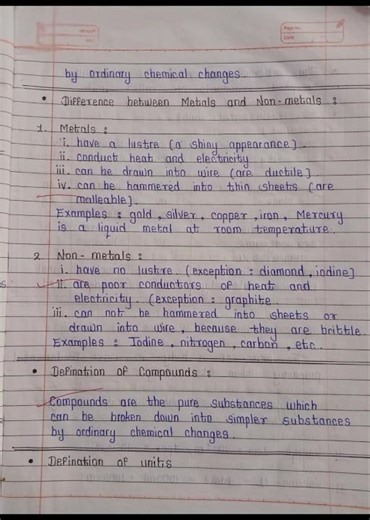 by ordinary chemical changes.
• Difference between Metals and Non-metals :
1. Metals :
i. have a lustre (a shiny appearance).
ii. conduct heat and electricity
iii. can be drawn into wire (are ductile)
iv. can be hammered into thin sheets (are
malleable).
Examples : gold, silver, copper, iron, Mercury
is a liquid metal at room temperature.
2. Non-metals :
i. have no lustre. (exception : diamond, iodine)
ii. are poor conductors of heat and
electricity. (exception : graphite.
iii. can not be hammered into sheets or
drawn into wire, because they are brittle.
Examples : Iodine, nitrogen, carbon, etc.
• Defination of Compounds :
Compounds are the pure substances which
can be broken down into simpler substances
by ordinary chemical changes.
• Defination of units